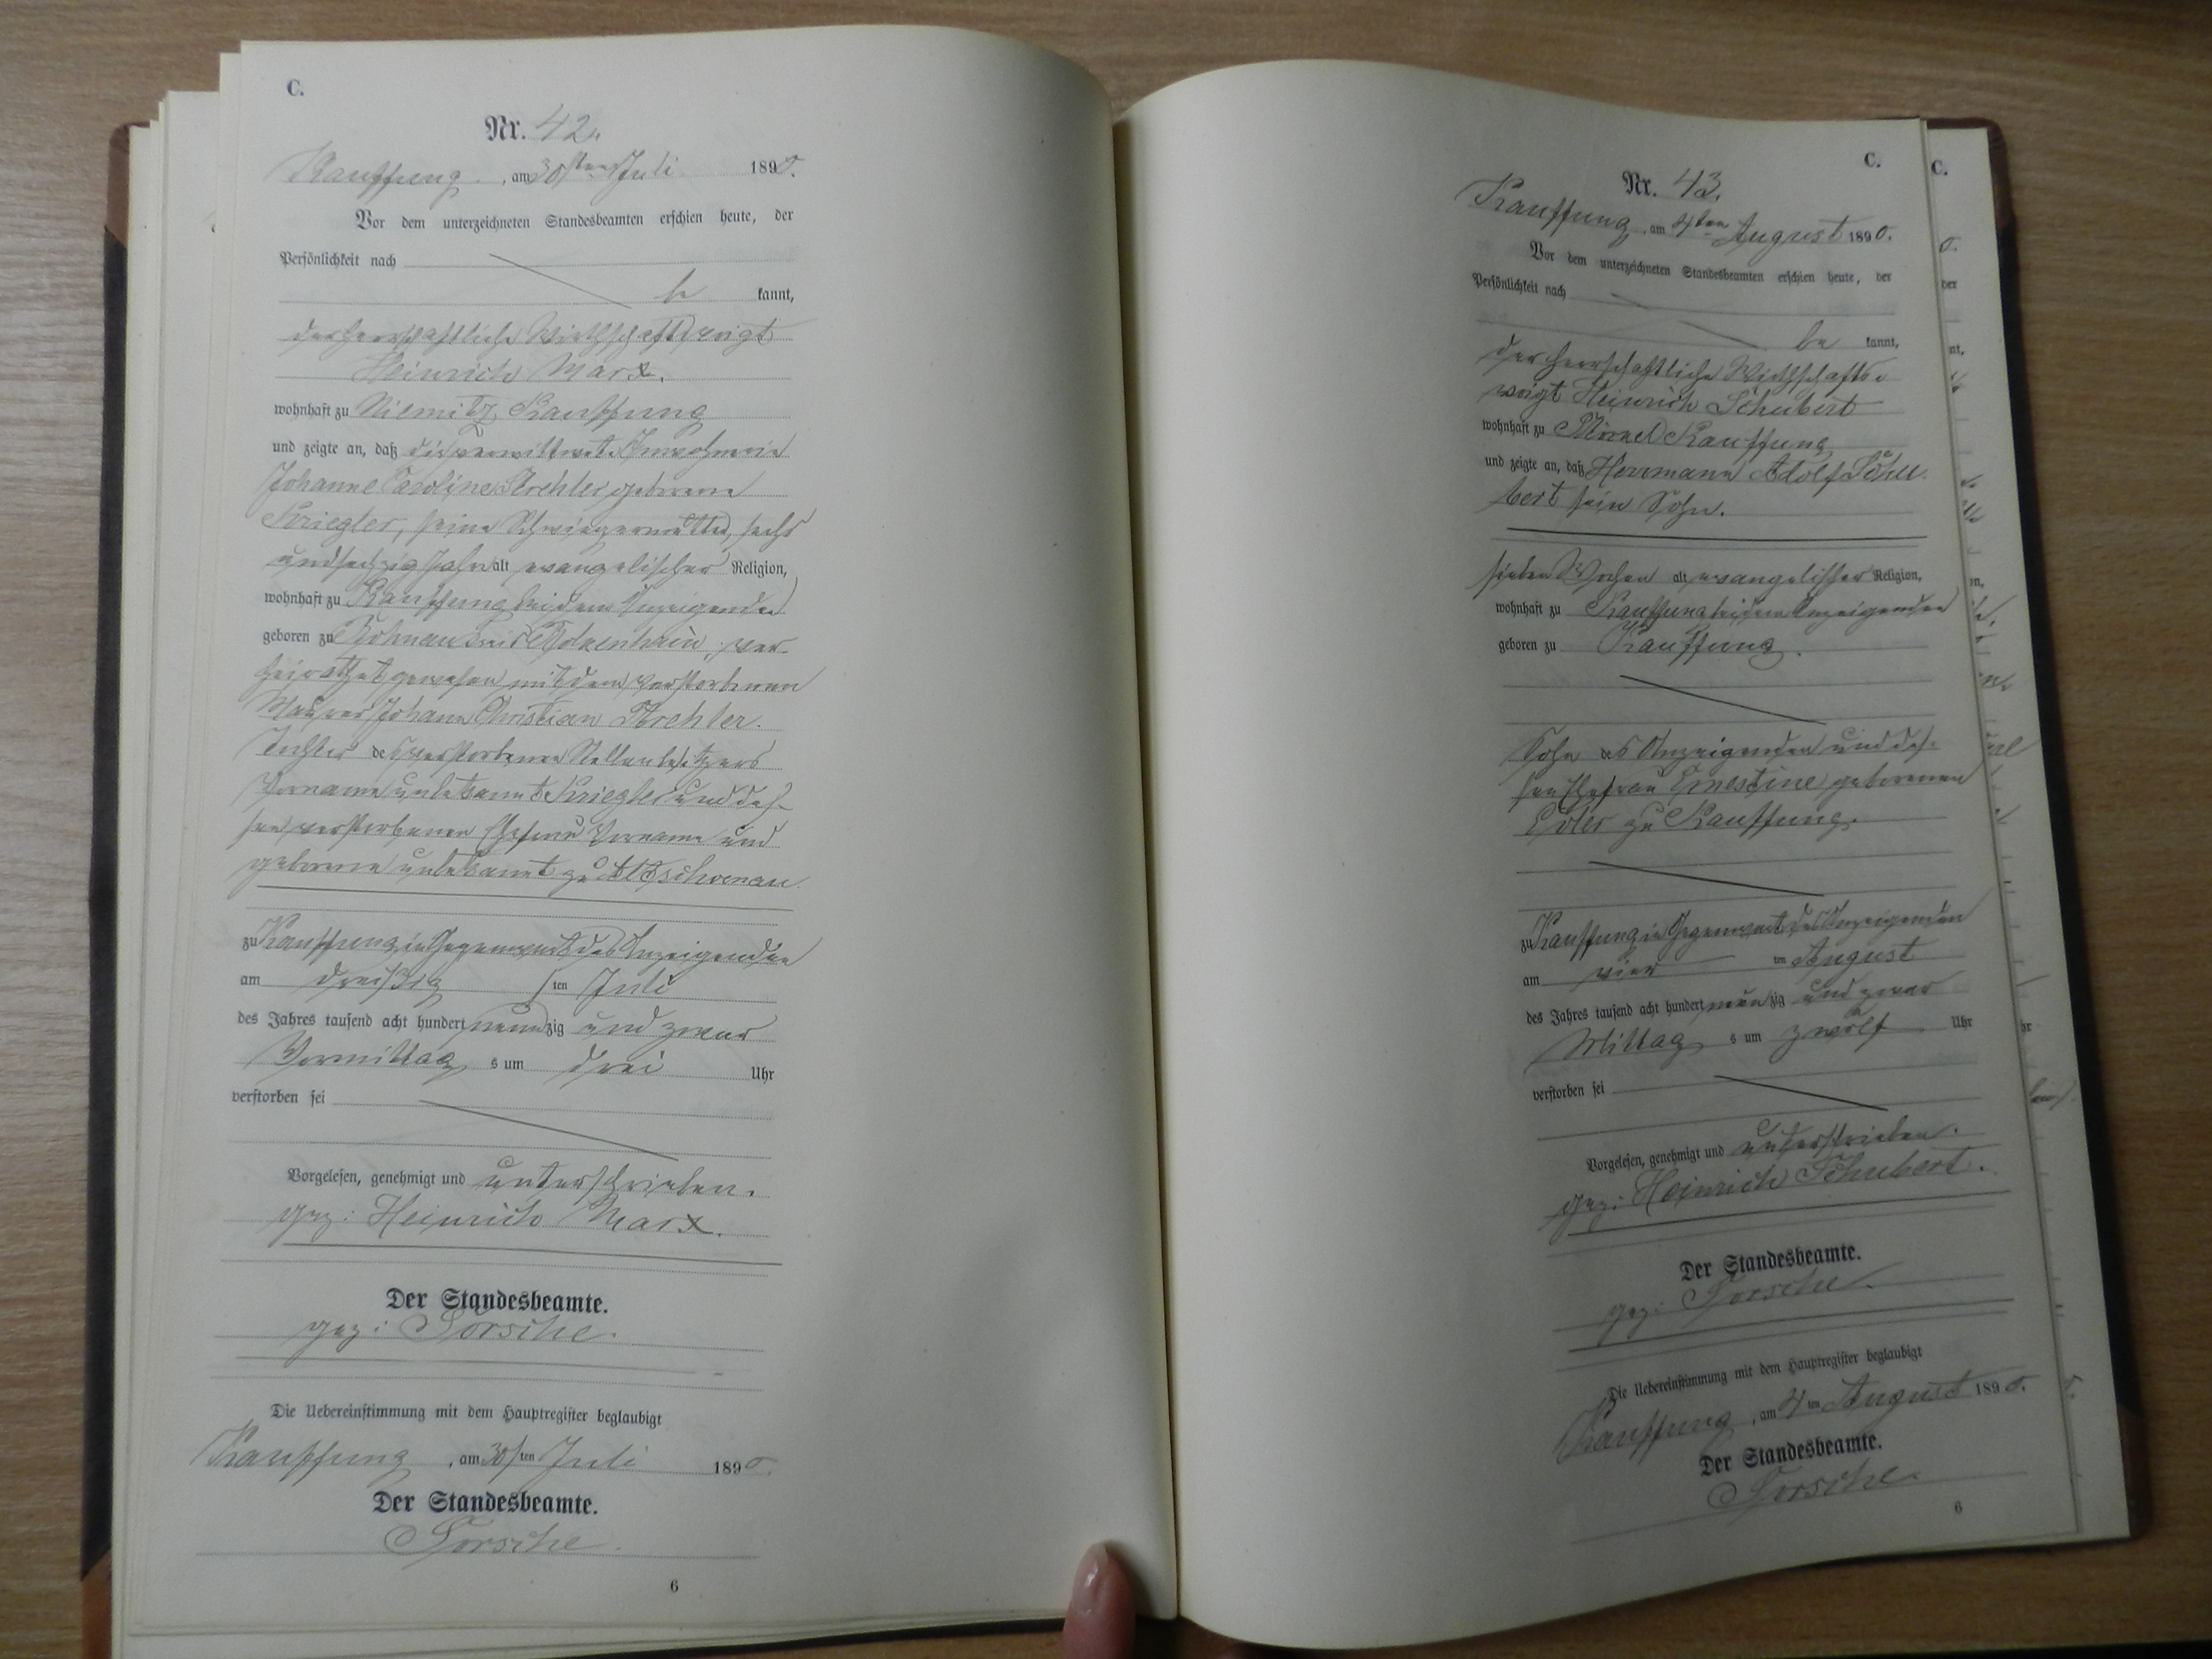 C.
Nr. 42.
Kauffung, am 30sten Juli 1890.
Vor dem unterzeichneten Standesbeamten erschien heute, der
Persönlichkeit nach
be kannt,
der herrschaftliche Wirthschaftsvoigt
Heinrich Marx.
wohnhaft zu Niemitz Kauffung
und zeigte an, daß die verwittwete Inwohnerin
Johanne Caroline geborene
Kriegler, seine Schwiegermutter, sechs
undsechzig Jahre alt evangelischer Religion,
wohnhaft zu Kauffung bei dem Anzeigenden
geboren zu Kreis Bolkenhain, ver-
heirathet gewesen mit dem verstorbenen
Maurer Johann Christian
Tochter des verstorbenen Stellenbesitzers
Vorname unbekannt Kriegler und des-
sen verstorbenen Ehefrau Vorname und
geborene unbekannt zu Altschoenau.
zu Kauffung in Gegenwart des Anzeigenden
am dreißig sten Juli
des Jahres tausend acht hundert neunzig und zwar
Vormittag s um drei Uhr
verstorben sei
Vorgelesen, genehmigt und unterschrieben.
gez: Heinrich Marx.
Der Standesbeamte.
gez: Forsche.
Die Uebereinstimmung mit dem Hauptregister beglaubigt
Kauffung, am 30sten Juli 1890.
Der Standesbeamte.
Forsche.
6
C.
Nr. 43.
Kauffung, am 4ten August 1890.
Vor dem unterzeichneten Standesbeamten erschien heute, der
Persönlichkeit nach
be kannt,
der herrschaftliche Wirthschafts-
voigt Heinrich Schubert
wohnhaft zu Kauffung
und zeigte an, daß Herrmann Adolf Schu
bert sein Sohn.
sieben Wochen alt evangelischer Religion,
wohnhaft zu Kauffung bei dem Anzeigenden
geboren zu Kauffung.
Sohn des Anzeigenden und des-
sen Ehefrau Ernestine geborenen
zu Kauffung.
zu Kauffung in Gegenwart des Anzeigenden
am vier ten August
des Jahres tausend acht hundert neunzig und zwar
Mittag s um zwölf Uhr
verstorben sei
Vorgelesen, genehmigt und unterschrieben.
gez: Heinrich Schubert.
Der Standesbeamte.
gez: Forsche.
Die Uebereinstimmung mit dem Hauptregister beglaubigt
Kauffung, am 4ten August 1890.
Der Standesbeamte.
Forsche.
6
C.